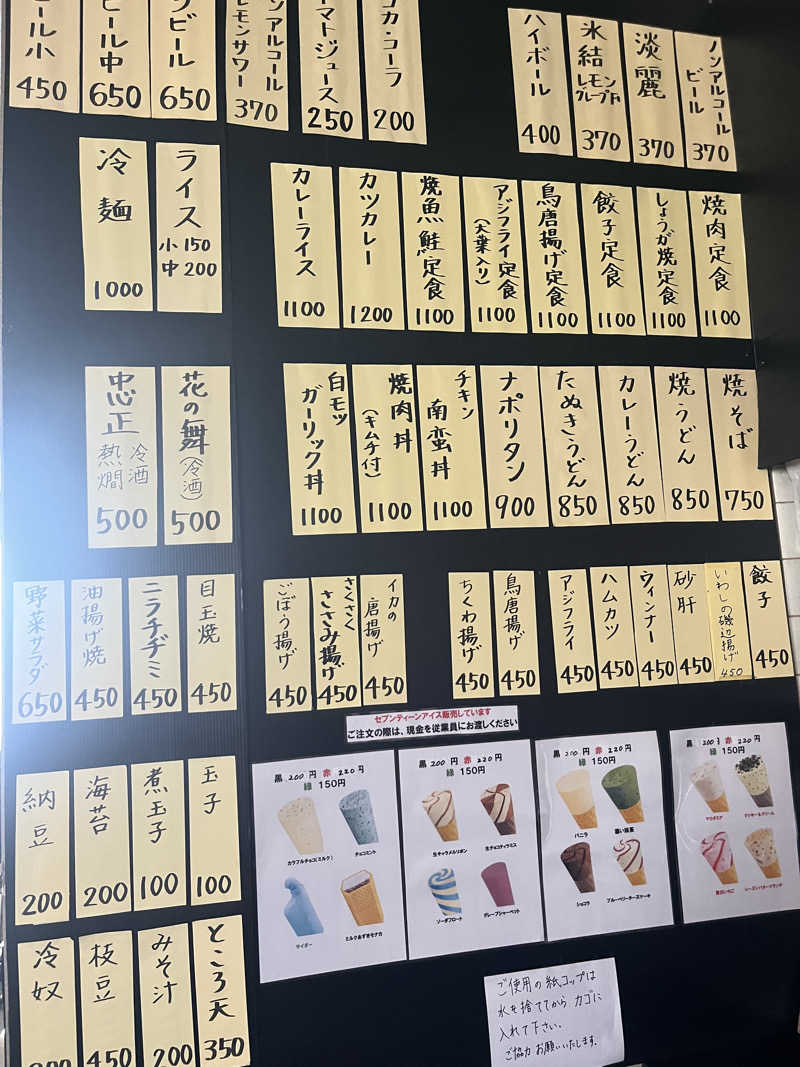 ノンアルコール
ビール
370
淡麗
370
氷結
レモン
370
ハイボール
400
コカ・コーラ
200
トマトジュース
250
ノンアルコール
レモンサワー
370
650
ビール中
650
ビール小
450
焼肉定食
1100
しょうが焼定食
1100
餃子定食
1100
鳥唐揚げ定食
1100
アジフライ定食
(大葉入り)
1100
焼魚鮭定食
1100
カツカレー
1200
カレーライス
1100
ライス
小150
中200
冷麺
1000
焼そば
750
焼うどん
850
カレーうどん
850
たぬきうどん
850
ナポリタン
900
チキン
南蛮丼
1100
焼肉丼
(キムチ付)
1100
白モツ
ガーリック丼
1100
花の舞
(冷酒)
500
忠正
冷酒
熱燗
500
餃子
450
いわしの磯辺揚げ
450
砂肝
450
ウィンナー
450
ハムカツ
450
アジフライ
450
鳥唐揚げ
450
ちくわ揚げ
450
イカの
唐揚げ
450
さくさく
ささみ揚げ
450
ごぼう揚げ
450
目玉焼
450
ニラチヂミ
450
油揚げ焼
450
野菜サラダ
650
セブンティーンアイス販売しています
ご注文の際は、現金を従業員にお渡しください
黒200円 赤220円
緑150円
カラフルチョコ(ミルク)
チョコミント
サイダー
ミルクあずきモナカ
黒200円 赤220円
緑150円
生キャラメルリボン
生チョコティラミス
ソーダフロート
グレープシャーベット
黒200円 赤220円
緑150円
バニラ
濃い抹茶
ショコラ
ブルーベリーチーズケーキ
黒200円 赤220円
緑150円
マカダミア
クッキー&クリーム
玉子
100
煮玉子
100
海苔
200
納豆
200
ところ天
350
みそ汁
200
枝豆
450
冷奴
ご使用の紙コップは
水を捨ててから カゴに
入れて下さい。
ご協力お願いいたします。